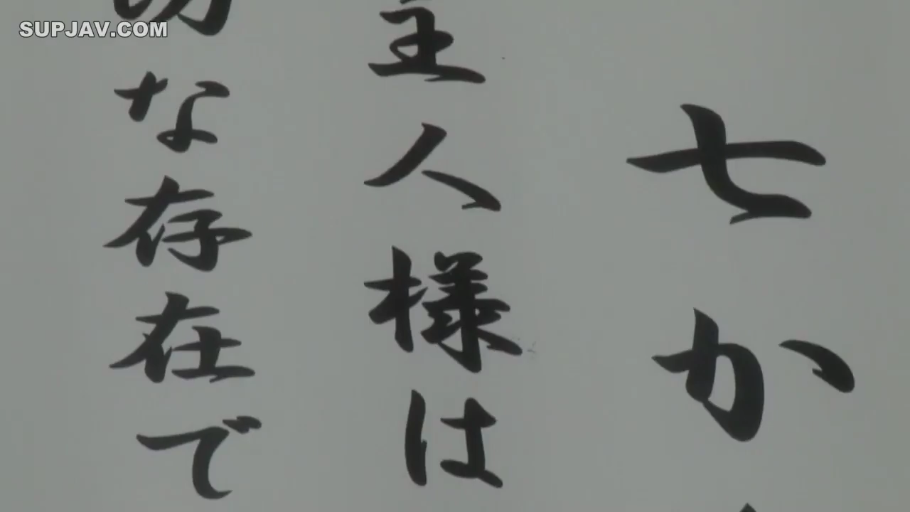 SUPJAV.COM
七か
主人様は
な存在で